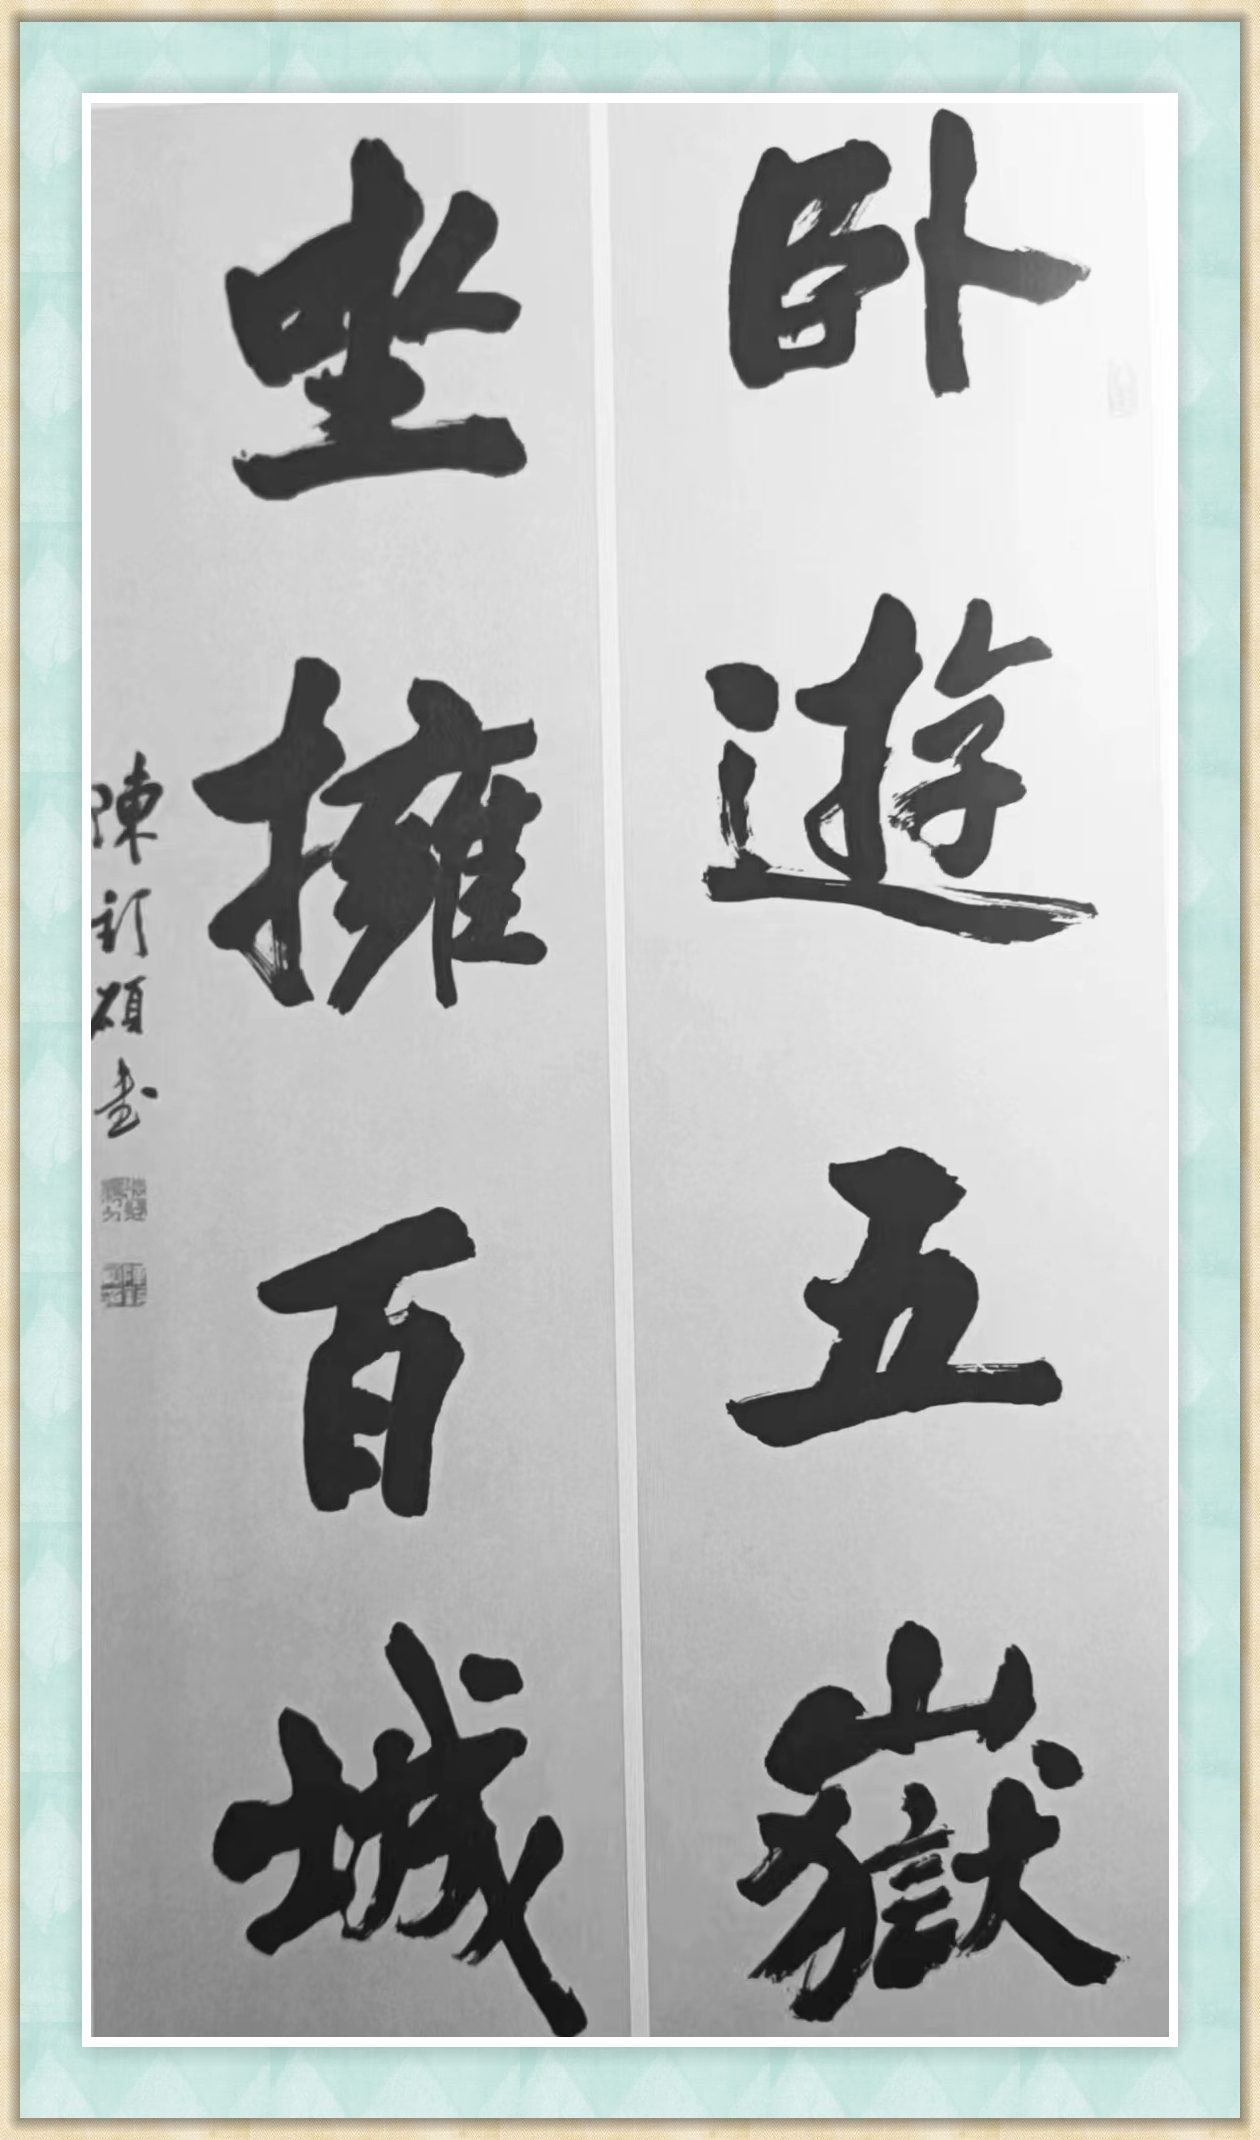 卧遊五嶽
坐擁百城
陳訂碩書